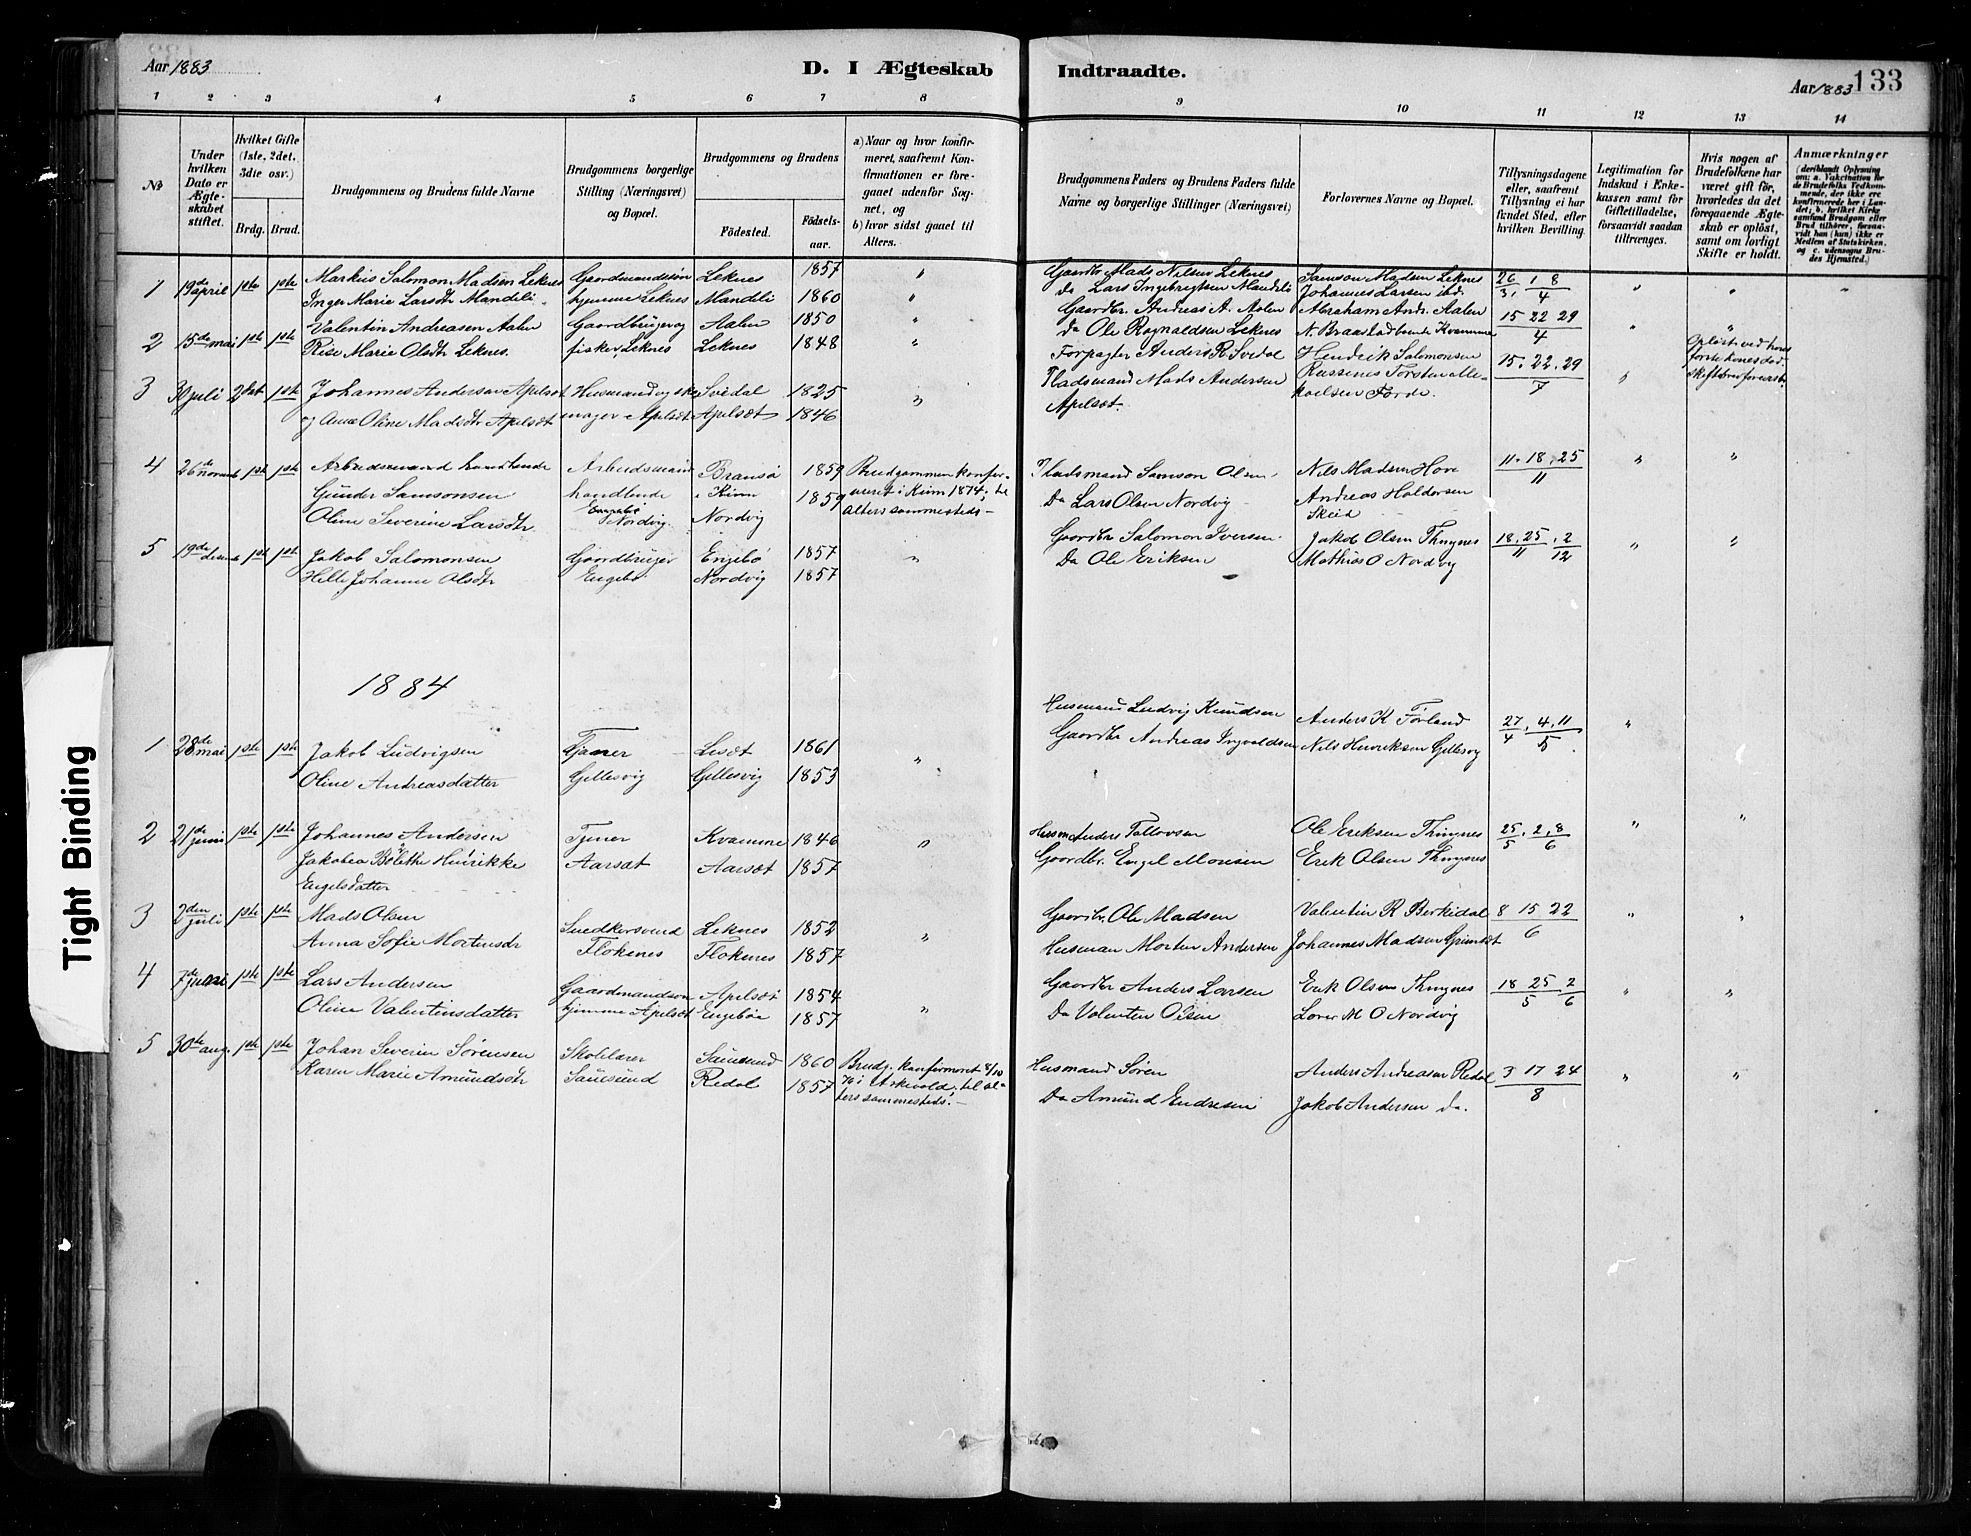 Aar 1883
D. I Ægteskab
Indtraadte.
Aar 1883
133
1 2 3 4 5 6 7 8 9 10 11 12 13 14
No
Under hvilken Dato er Ægteskabet stiftet.
Hvilket Gifte (1ste, 2det, 3die osv.)
Brdg. Brud.
Brudgommens og Brudens fulde Navne
Brudgommens borgerlige Stilling (Næringsvei) og Bopæl.
Brudgommens og Brudens
Födested.
Födselsaar.
a) Naar og hvor konfirmeret, saafremt Konfirmationen er foregaaet udenfor Sognet, og
b) hvor sidst gaaet til Alters.
Brudgommens Faders og Brudens Faders fulde Navne og borgerlige Stillinger (Næringsvei)
Forlovernes Navne og Bopæl.
Tillysningsdagene eller, saafremt Tillysning ei har fundet Sted, efter hvilken Bevilling.
Legitimation for Indskud i Enkekassen samt for Giftetilladelse, forsaavidt saadan tiltrænges.
Hvis nogen af Brudefolkene har været gift för, hvorledes da det foregaaende Ægteskab er oplöst, samt om lovligt Skifte er holdt.
Anmærkninger (deriblandt Oplysning om: a. Vakcination for de Brudefolks Vedkommende, der ikke ere konfirmerede her i Landet; b. hvilket Kirkesamfund Brudgom eller Brud tilhörer, forsaavidt han (hun) ikke er Medlem af Statskirken, og c. udensogns Brudes Hjemsted.)
1 19de april 1ste 1ste Markus Salomon Madsen Leknes Gaardmandssön Leknes 1857 " Gaardbr Mads Nilsen Leknes Samson Madsen Leknes 26/3, 1 8/4 " " "
Inger Marie Larsdtr Mandeli hjemme Leknes Mandeli 1860 " Da Lars Ingebrigtsen Mandeli Johannes Larsen ibd.
2 15de mai 1ste 1ste Valentin Andreasen Aalen Gaardbruger og Aalen 1850 " Gaardbr Andreas A. Aalen Abraham Andr. Aalen 15 22 29/4 " "
Rise Marie Olsdtr Leknes. fisker Leknes Leknes 1848 " Da Ole Ragnaldsen Leknes N. Braastad Kvamme
3 30 juli 2det 1ste Johannes Andersen Apelsæt Husmand og sko Svedal 1825 " Forpagter Anders R. Svedal Hendrik Salomonsen 15. 22. 29/7 " Oplöst ved hans
og Ane Oline Madsdtr Apelsæt mager Apelsæt Apelsæt 1846 Pladsmand Mads Andersen Apelsæt. Rassenes Torsten Mikkelsen Förde. förste kones död.
4 26de novemb 1ste 1ste Arbeidsmand handlende Arbeidsmand Bransö 1859 Brudgommen konfir- Pladsmand Samson Olsen Nils Madsen Hove 11. 18. 25/11 " "
Gunder Samsonsen handlende i Kinn 1859 meret i Kinn 1874; til Da Lars Olsen Nordvig Andreas Haldorsen
Oline Severine Larsdtr Engebö Nordvig. Nordvig alters sammesteds – Skeid
5 19de desemb 1ste 1ste Jakob Salomonsen Gaardbruger Engebö 1857 " Gaardbr Salomon Iversen Jakob Olsen Thingnes 18. 25/11. 2/12 " "
Helle Johanne Olsdtr Engebö Nordvig 1857 Da Ole Eriksen Mathias O Nordvig
1884
1 28de mai 1ste 1ste Jakob Ludvigsen Tjener Lesæt 1861 " Husmand Ludvig Knudsen Anders K Förland 27/4. 4. 11/5. "
Oline Andreasdatter Gillesvig Gillesvig 1853 Gaardbr Andreas Ingvaldsen Nils Henriksen Gillesvg
2 21de juni 1ste 1ste Johannes Andersen Tjener Kvamme 1846 " Husm Anders Tollevsen Ole Eriksen Thingnes 25/5. 2. 8/6 " "
Jakobea Bolette Hinrikke Aarsæt Aarsæt 1857 Gaardbr. Engel Monsen Erik Olsen Thingnes
Engelsdatter
3 2den juli 1ste 1ste Mads Olsen Snedkersvend Leknes 1852 " Gaardbr. Ole Madsen Valentin R Berkedal 8 15 22/6 " "
Anna Sofie Mortensdr Flokenes Flokenes 1857 Husman Morten Andersen Johannes Madsen Grimsæt
4 7de juni 1ste 1ste Lars Andersen Gaardmandssön Apelsæt 1854 " Gaardbr Anders Larsen Erik Olsen Thingnes 18 25/5 2/6 " "
Oline Valentinsdatter hjemme Apelsæt Engeböe 1857 Da Valentin Olsen M O Nordvig
5 30te aug. 1ste 1ste Johan Severin Sörensen Skolelærer Sauesund 1860 Brudg. konfirmeret 8/10 Husmand Sören Anders Andreasen Redal 3 17 24/8 " "
Karen Marie Amundsdtr Sauesund Redal 1857 76 i Askevold; til al- Da Amund Endresen Jakob Andersen da.
ters sammesteds. –
Tight Binding